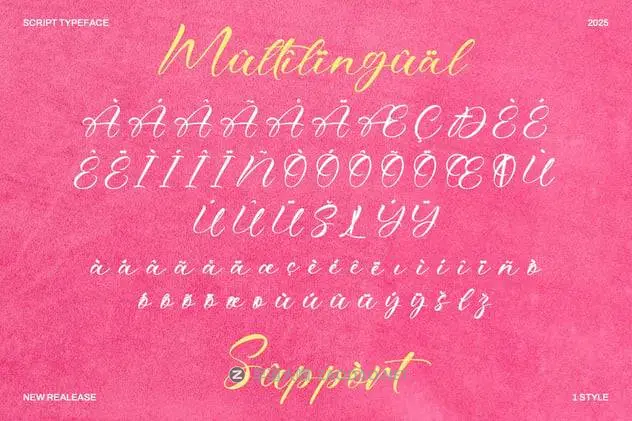 SCRIPT TYPEFACE
2025
Mûltîlïngûäl
À Á Â Ã Å Ä Æ Ç Ð È É
Ê Ë Ì Í Î Ï Ñ Ò Ó Ô Õ Ö Œ Ø Ù
Ú Û Ü Š Ł Ý Ÿ
à á â ã å ä æ ç è é ê ë ı ì í î ï ñ ò
ó ô õ ö œ ø ù ú û ü ý ÿ š ł ž
Sùppòrt
NEW REALEASE
1 STYLE